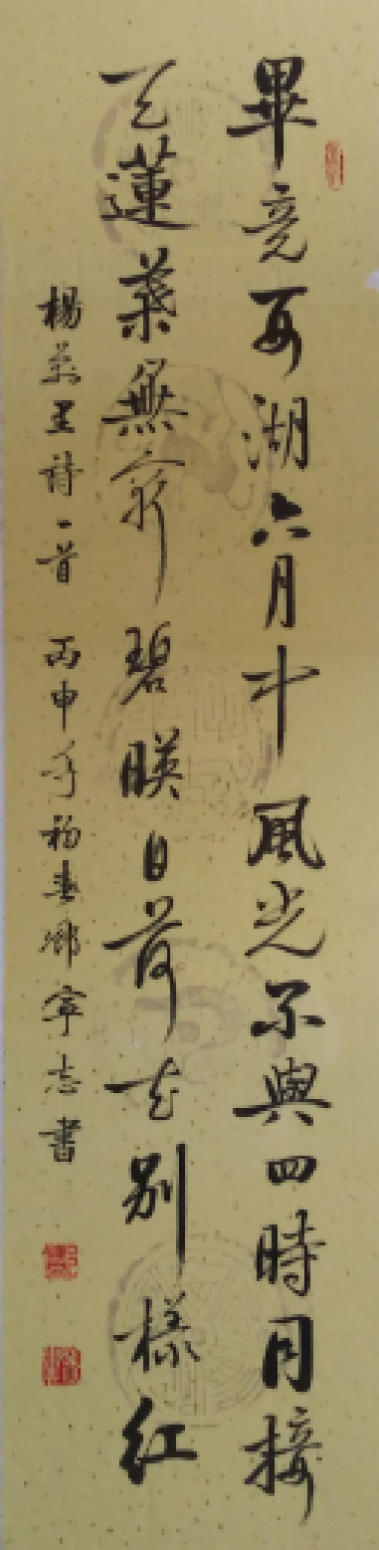 畢竟西湖六月中風光不與四時同接
天蓮葉無窮碧映日荷花別樣紅
楊萬里詩一首 丙申年初春寧志書